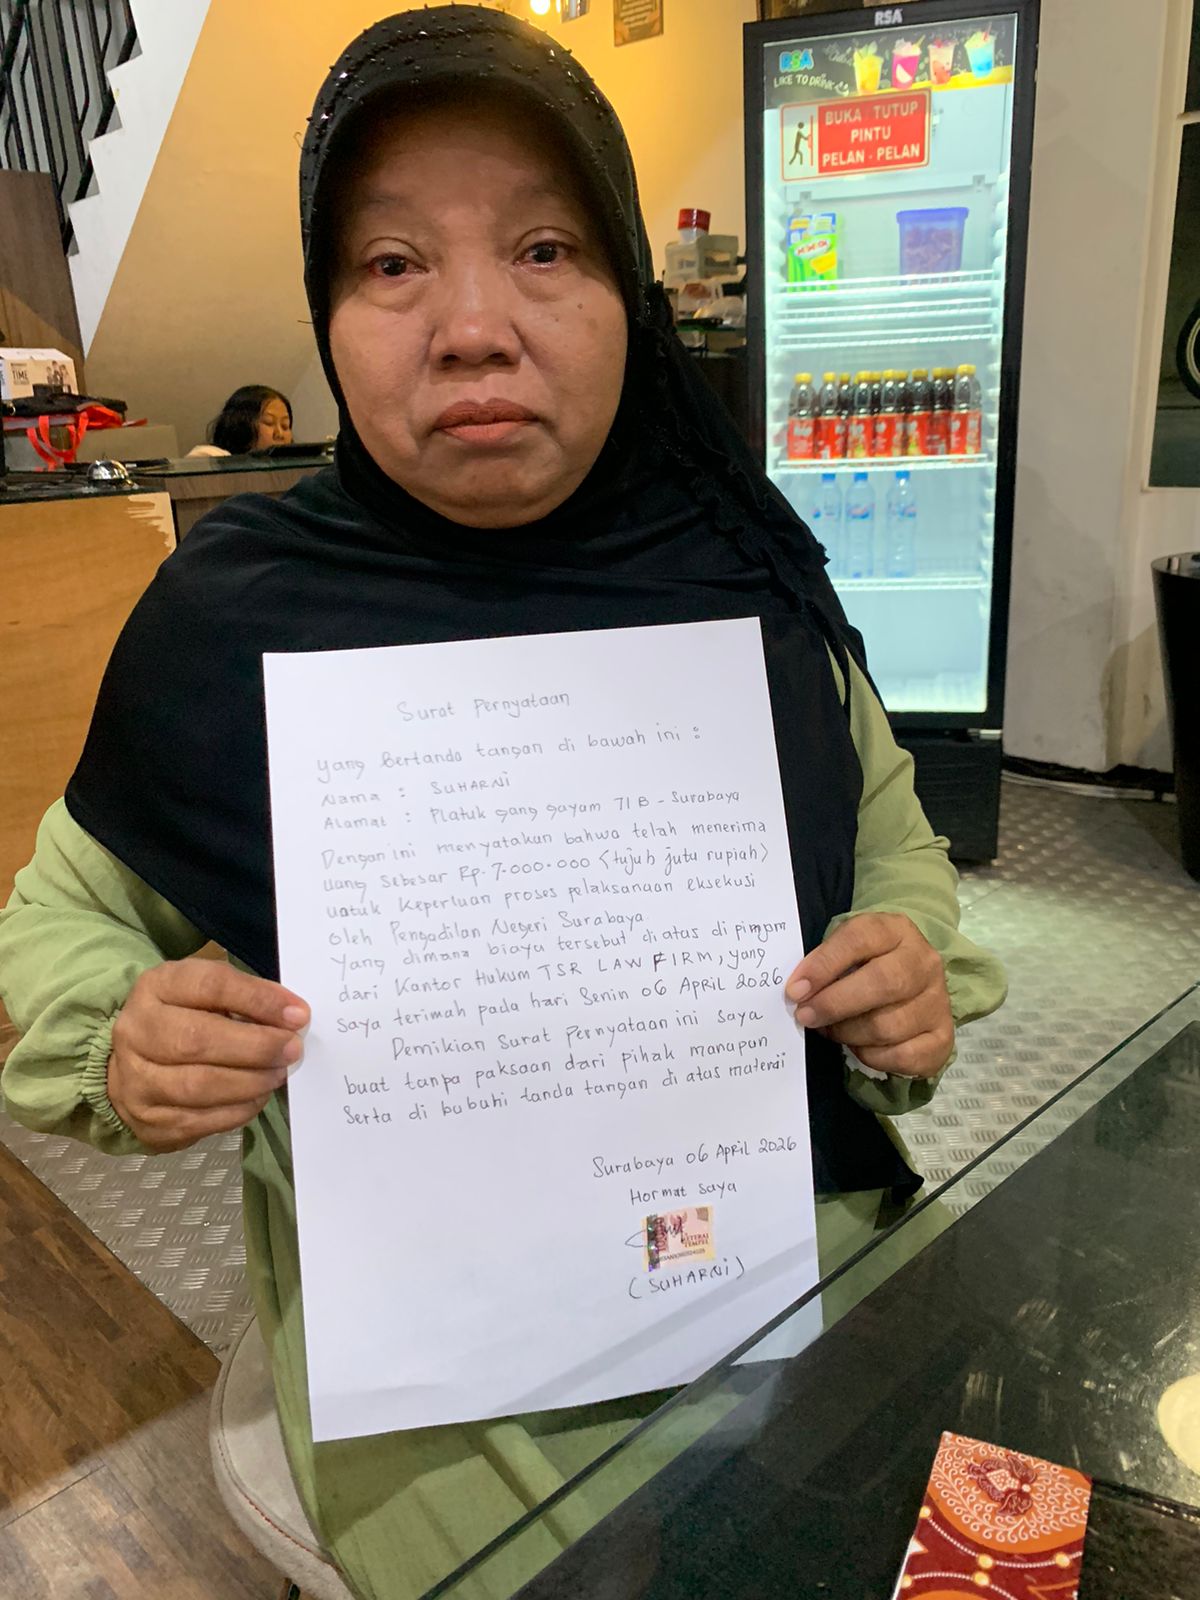 RSA
RSA
LIKE TO DRINK
BUKA TUTUP
PINTU
PELAN - PELAN
TIME
Surat Pernyataan
Yang Bertanda tangan di bawah ini :
Nama : SUHARNi
Alamat : Platuk gang gayam 71 B - Surabaya
Dengan ini menyatakan bahwa telah menerima
uang sebesar Rp. 7.000.000 <tujuh jutu rupiah>
untuk keperluan proses pelaksanaan eksekusi
oleh Pengadilan Negeri Surabaya.
Yang dimana biaya tersebut di atas di pinjam
dari Kantor Hukum TSR LAW FIRM, yang
saya terimah pada hari Senin 06 April 2026
Demikian Surat Pernyataan ini saya
buat tanpa paksaan dari pihak manapun
Serta di bubuhi tanda tangan di atas materai
Surabaya 06 April 2026
Hormat saya
METERAI
TEMPEL
(SUHARNi)